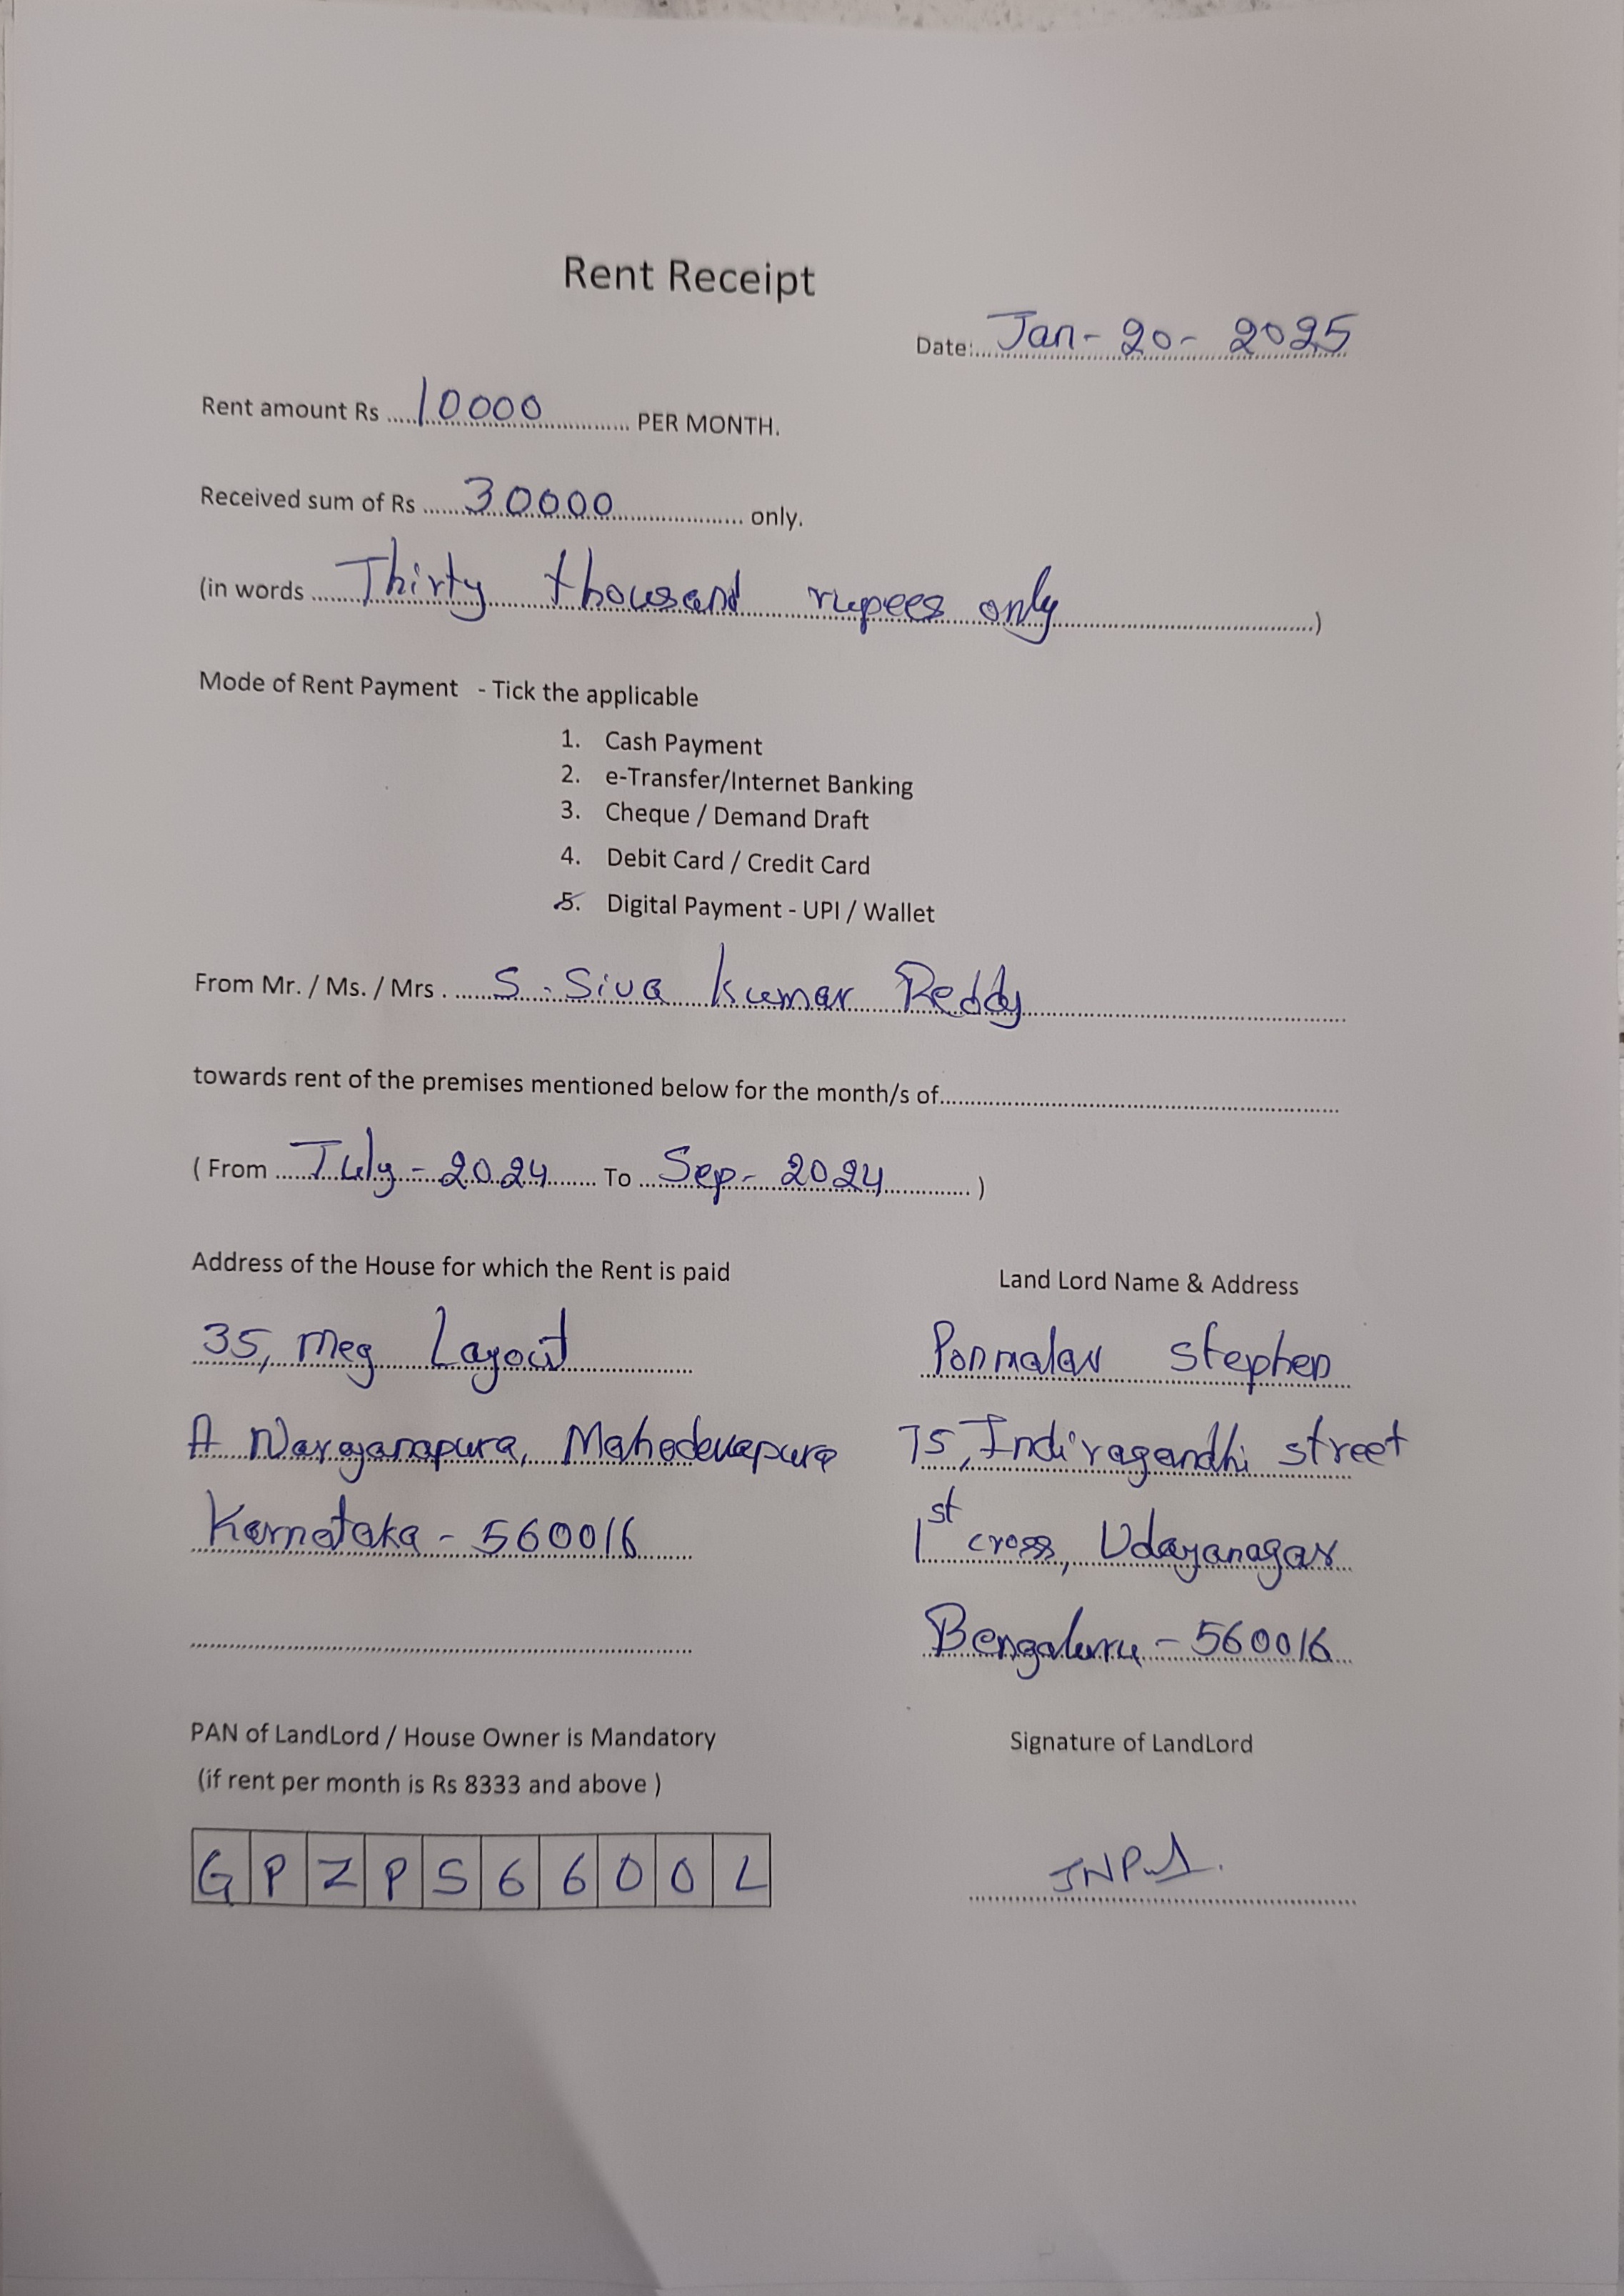 Rent Receipt
Date: Jan - 20 - 2025
Rent amount Rs 10000 PER MONTH.
Received sum of Rs 30000 only.
(in words Thirty thousand rupees only )
Mode of Rent Payment - Tick the applicable
1. Cash Payment
2. e-Transfer/Internet Banking
3. Cheque / Demand Draft
4. Debit Card / Credit Card
5. Digital Payment - UPI / Wallet
From Mr. / Ms. / Mrs . S. Siva Kumar Reddy
towards rent of the premises mentioned below for the month/s of
( From July - 2024 To Sep - 2024 )
Address of the House for which the Rent is paid
35, Meg Layout
A Narayanapura, Mahadevapura
Karnataka - 560016
Land Lord Name & Address
Ponmalar Stephen
75, Indiragandhi street
1st cross, Udayanagar
Bengaluru - 560016
PAN of LandLord / House Owner is Mandatory
(if rent per month is Rs 8333 and above )
GPZPS6600L
Signature of LandLord